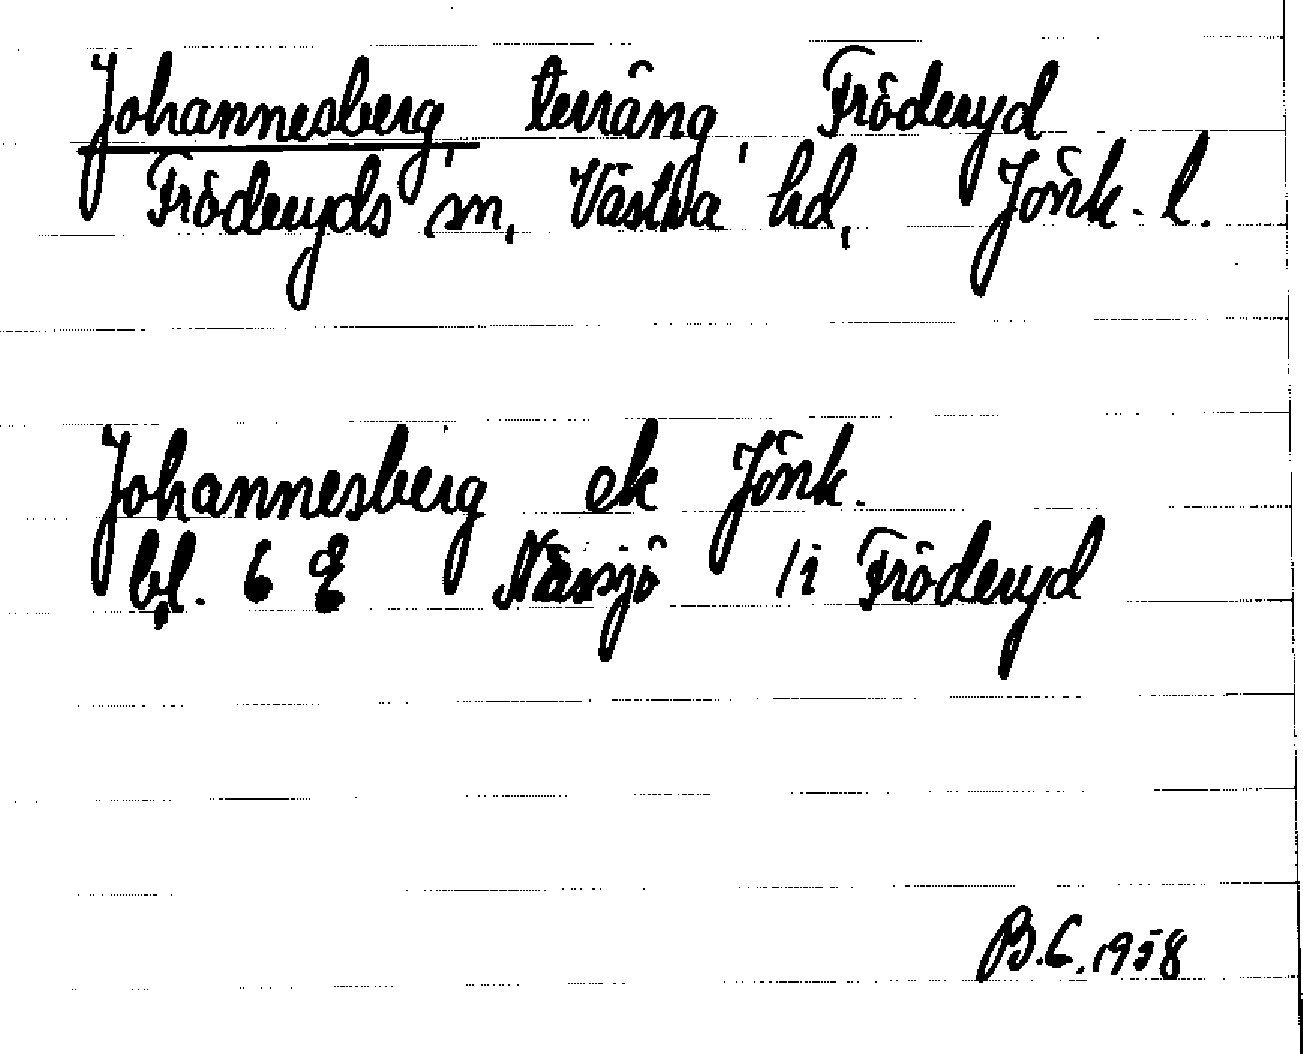 Johannesberg, terräng, Fröderyd
Fröderyds sn, Västra hd, Jönk. l.
Johannesberg ek Jönk.
bl. 6 E Nässjö /i Fröderyd
B.C. 1958